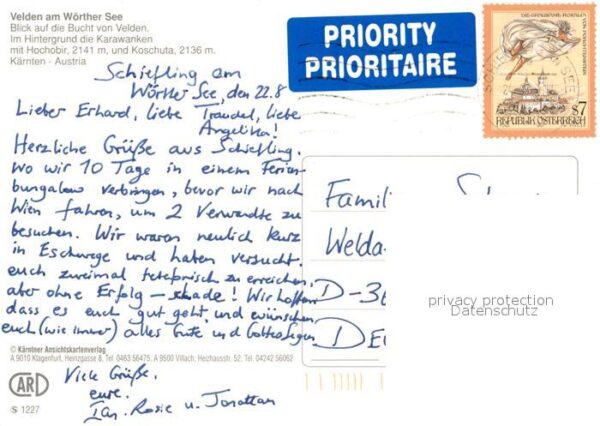 Velden am Wörther See
Blick auf die Bucht von Velden.
Im Hintergrund die Karawanken
mit Hochobir, 2141 m, und Koschuta, 2136 m.
Kärnten - Austria
PRIORITY
PRIORITAIRE
s7
REPUBLIK ÖSTERREICH
Schiefling am
Wörther See, den 22.8
Lieber Erhard, liebe Traudel, liebe
Angelika!
Herzliche Grüße aus Schiefling.
wo wir 10 Tage in einem Ferien-
bungalow verbringen, bevor wir nach
Wien fahren, um 2 Verwandte zu
besuchen. Wir waren neulich kurz
in Eschwege und haben versucht.
euch zweimal telefonisch zu erreichen,
aber ohne Erfolg – schade! Wir hoffen
dass es euch gut geht, und wünschen
euch (wie immer) alles Gute und Gottes Segen.
Viele Grüße.
eure.
Ian, Rosie u. Jonathan
Famili
Welda
D-36
DEU
privacy protection
Datenschutz
© Kärntner Ansichtskartenverlag
A 9010 Klagenfurt, Heinzgasse 8, Tel. 0463 56475, A 9500 Villach, Heizhausstr. 52, Tel. 04242 56062
CARD
S 1227